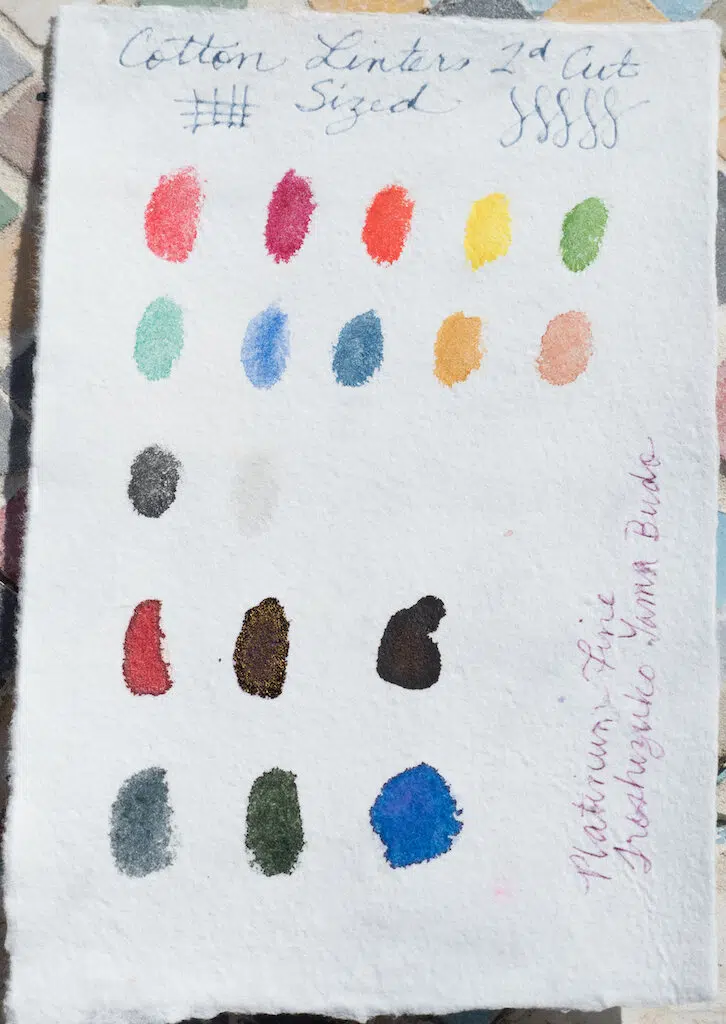 Cotton Linters 2d Cut
Sized
Platinum Fine
Iroshizuko Yama Budo